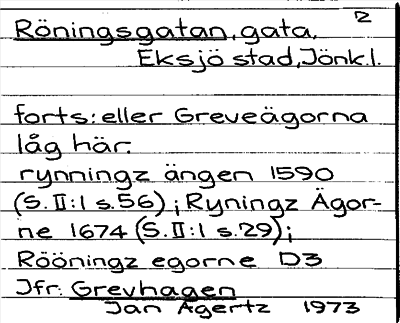 2
Röningsgatan, gata,
Eksjö stad, Jönk.l.
forts: eller Greveägorna
låg här.
rynningz ängen 1590
(S.II:1 s.56); Ryningz Ägor-
ne 1674 (S.II:1 s.29);
Rööningz egorne D3
Jfr: Grevhagen
Jan Agertz 1973